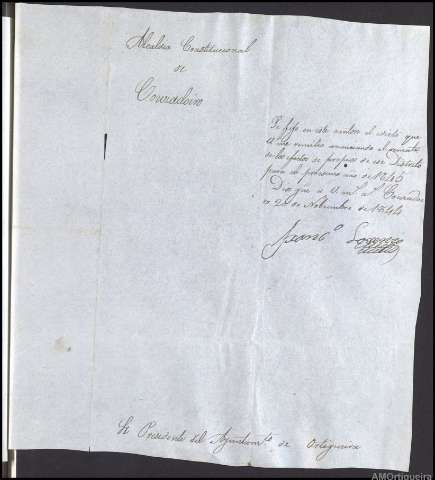 Alcaldia Constitucional
de
Couzadoiro
Se fijo en este centro el edicto que
V. me remitio anunciando el remate
de los efectos de propios de ese Distrito
para el proximo año de 1845
Dios gue á V. m.s a.s Couzadoi
ro 20 de Nobiembre de 1844
Franc.o Lorenzo
Sr Presidente del Ayuntam.to de Ortigueira
AMOrtigueira